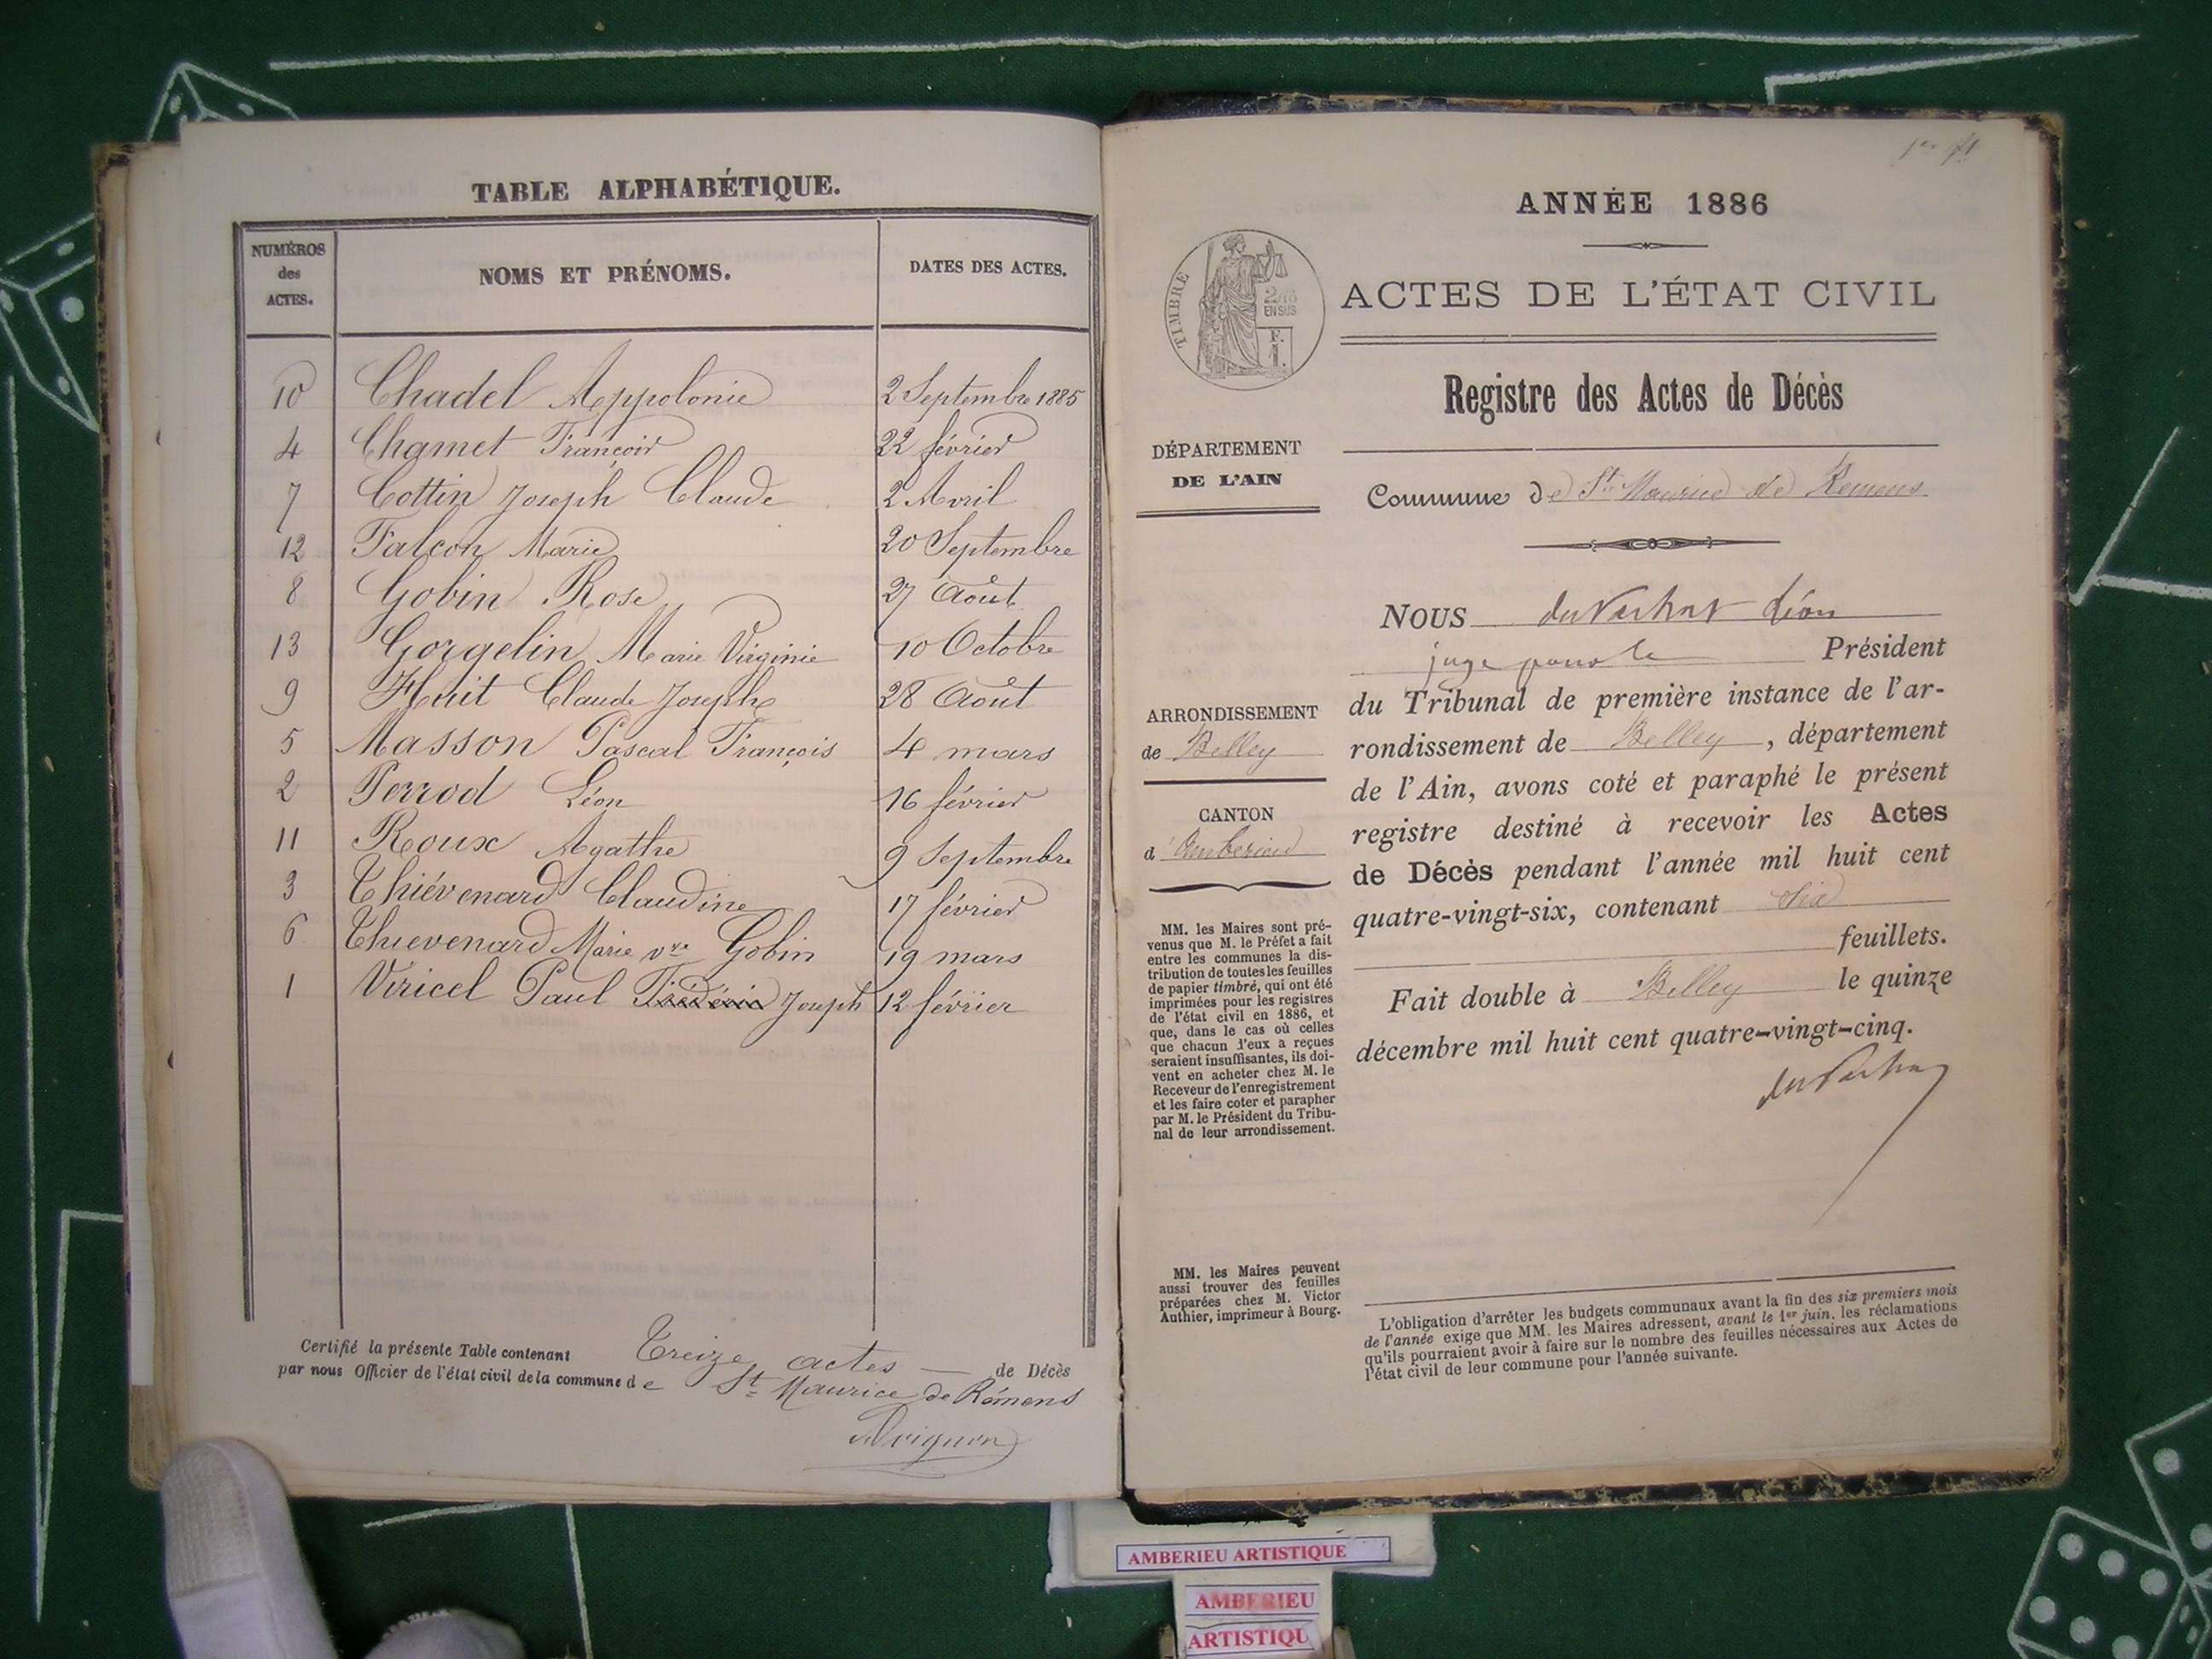 TABLE ALPHABÉTIQUE.
NUMÉROS
des
ACTES.
NOMS ET PRÉNOMS.
DATES DES ACTES.
10 Chadel Appolonie 2 Septembre 1885
4 Chamet François 22 février
7 Cottin Joseph Claude 2 Avril
12 Falcon Marie 20 Septembre
8 Gobin Rose 27 Août
13 Gorgelin Marie Virginie 10 Octobre
9 Huit Claude Joseph 28 Août
5 Masson Pascal François 4 mars
2 Perrod Léon 16 février
11 Roux Agathe 9 Septembre
3 Thiévenard Claudine 17 février
6 Thievenard Marie vve Gobin 19 mars
1 Viricel Paul Joseph 12 février
Certifié la présente Table contenant Treize actes de Décès
par nous Officier de l'état civil de la commune de St Maurice de Rémens
ANNÉE 1886
ACTES DE L'ÉTAT CIVIL
TIMBRE
2/10
EN SUS
F.
1.
Registre des Actes de Décès
DÉPARTEMENT
DE L'AIN
Commune de St Maurice de Remens
NOUS Léon
juge pour le Président
du Tribunal de première instance de l'ar-
rondissement de Belley, département
de l'Ain, avons coté et paraphé le présent
registre destiné à recevoir les Actes
de Décès pendant l'année mil huit cent
quatre-vingt-six, contenant Six
feuillets.
Fait double à Belley le quinze
décembre mil huit cent quatre-vingt-cinq.
ARRONDISSEMENT
de Belley
CANTON
d'Ambérieu
MM. les Maires sont pré-
venus que M. le Préfet a fait
entre les communes la dis-
tribution de toutes les feuilles
de papier timbré, qui ont été
imprimées pour les registres
de l'état civil en 1886, et
que, dans le cas où celles
que chacun d'eux a reçues
seraient insuffisantes, ils doi-
vent en acheter chez M. le
Receveur de l'enregistrement
et les faire coter et parapher
par M. le Président du Tribu-
nal de leur arrondissement.
MM. les Maires peuvent
aussi trouver des feuilles
préparées chez M. Victor
Authier, imprimeur à Bourg.
L'obligation d'arrêter les budgets communaux avant la fin des six premiers mois
de l'année exige que MM. les Maires adressent, avant le 1er juin, les réclamations
qu'ils pourraient avoir à faire sur le nombre des feuilles nécessaires aux Actes de
l'état civil de leur commune pour l'année suivante.
AMBERIEU ARTISTIQUE
AMBERIEU
ARTISTIQU